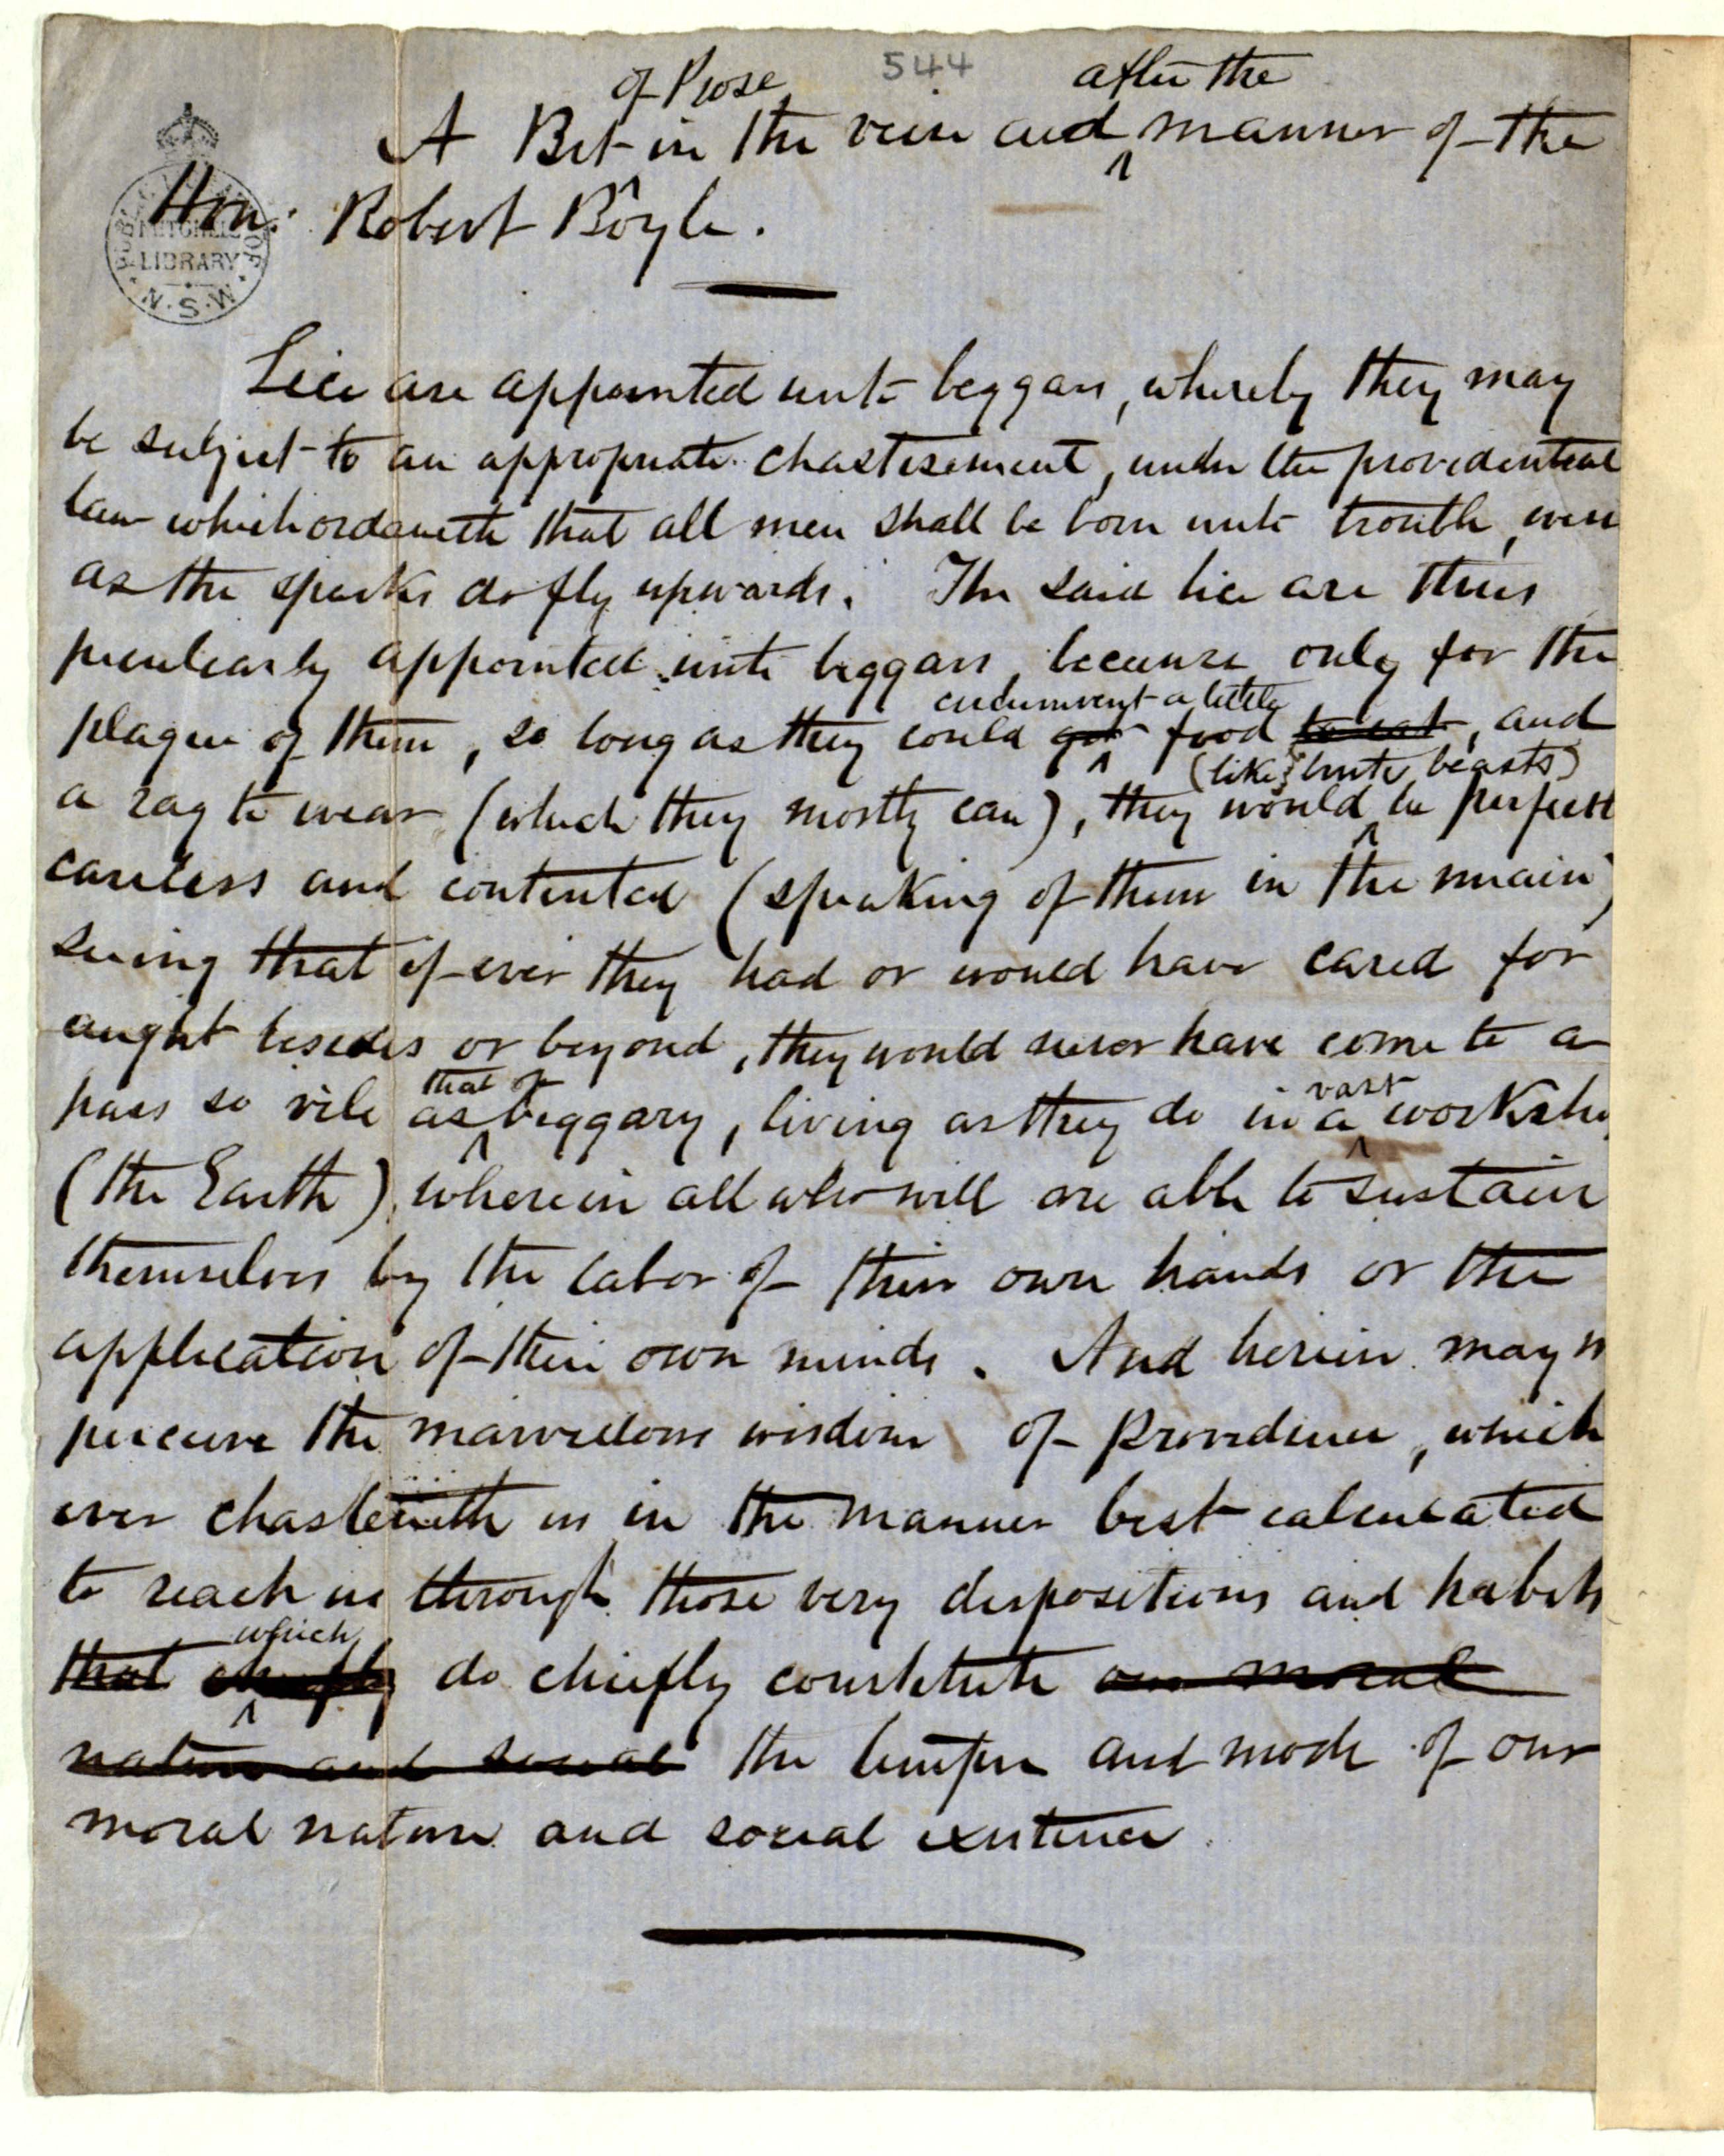 544
of Prose after the
A Bit in the vein and manner of the
Hon: Robert Boyle.
PUBLIC LIBRARY OF
MITCHELL
LIBRARY
N.S.W.
Lice are appointed unto beggars, whereby they may
be subject to an appropriate chastisement, under the providential
law which ordaineth that all men shall be born unto trouble, even
as the sparks do fly upwards. The said lice are thus
peculiarly appointed unto beggars, because only for the
circumvent a little
plague of them, so long as they could got food to eat, and
(like brute beasts)
a rag to wear (which they mostly can), they would be perfect
careless and contented (speaking of them in the main)
seeing that if ever they had or would have cared for
aught besides or beyond, they would never have come to a
that of vast
pass so vile as beggary, living as they do in a worksho
(the Earth), wherein all who will are able to sustain
themselves by the labor of their own hands or the
application of their own minds. And herein may
perceive the marvellous wisdom of Providence, which
ever chasteneth us in the manner best calculated
to reach us through those very dispositions and habits
which
that chiefly do chiefly constitute our moral
nature and social the temper and mode of our
moral nature and social existence.